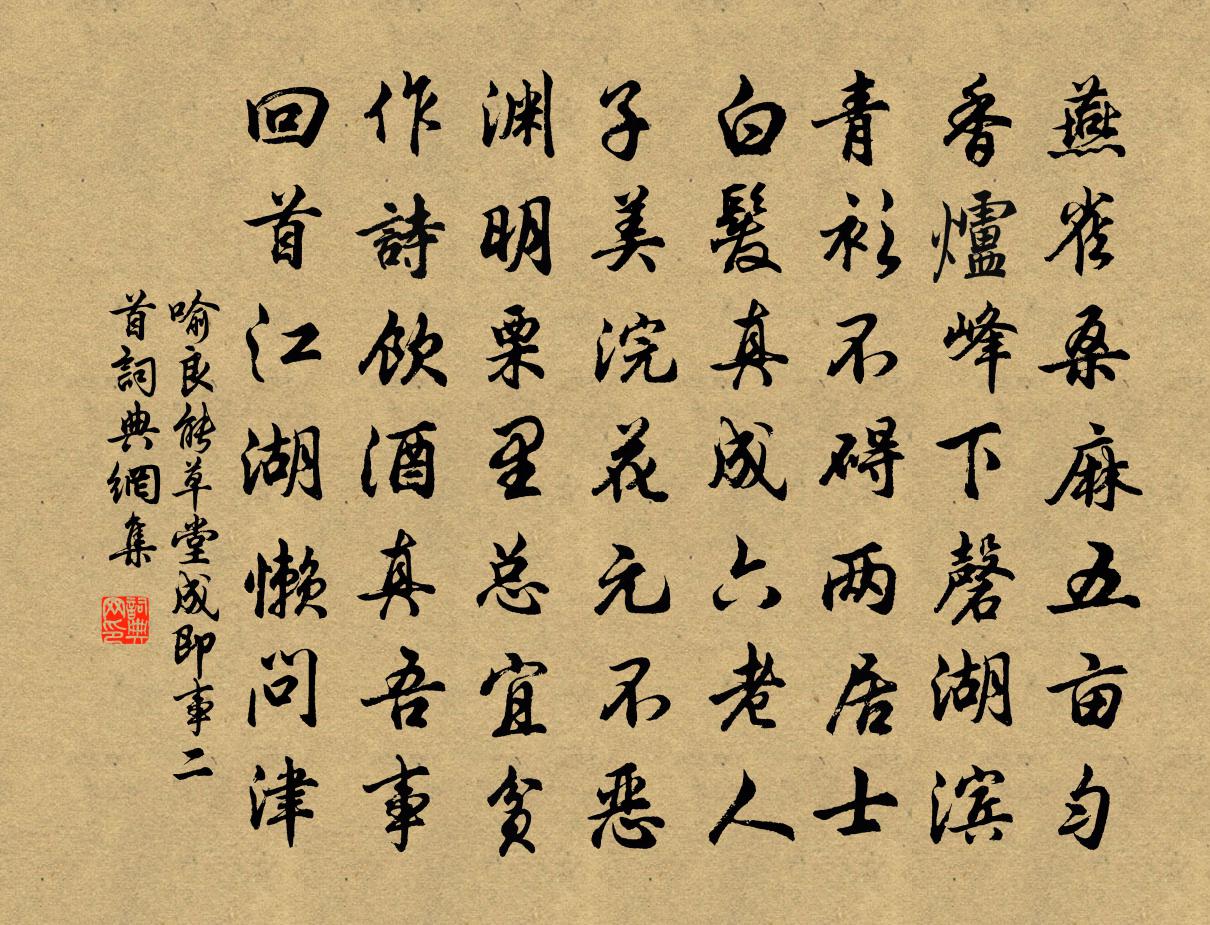 燕雀桑麻五亩匀
香爐峰下磬湖滨
青衫不碍两居士
白髮真成六老人
子美浣花元不恶
渊明栗里总宜贫
作詩飲酒真吾事
回首江湖懒问津
喻良能草堂成即事二
首詞典網集
詞典
网印